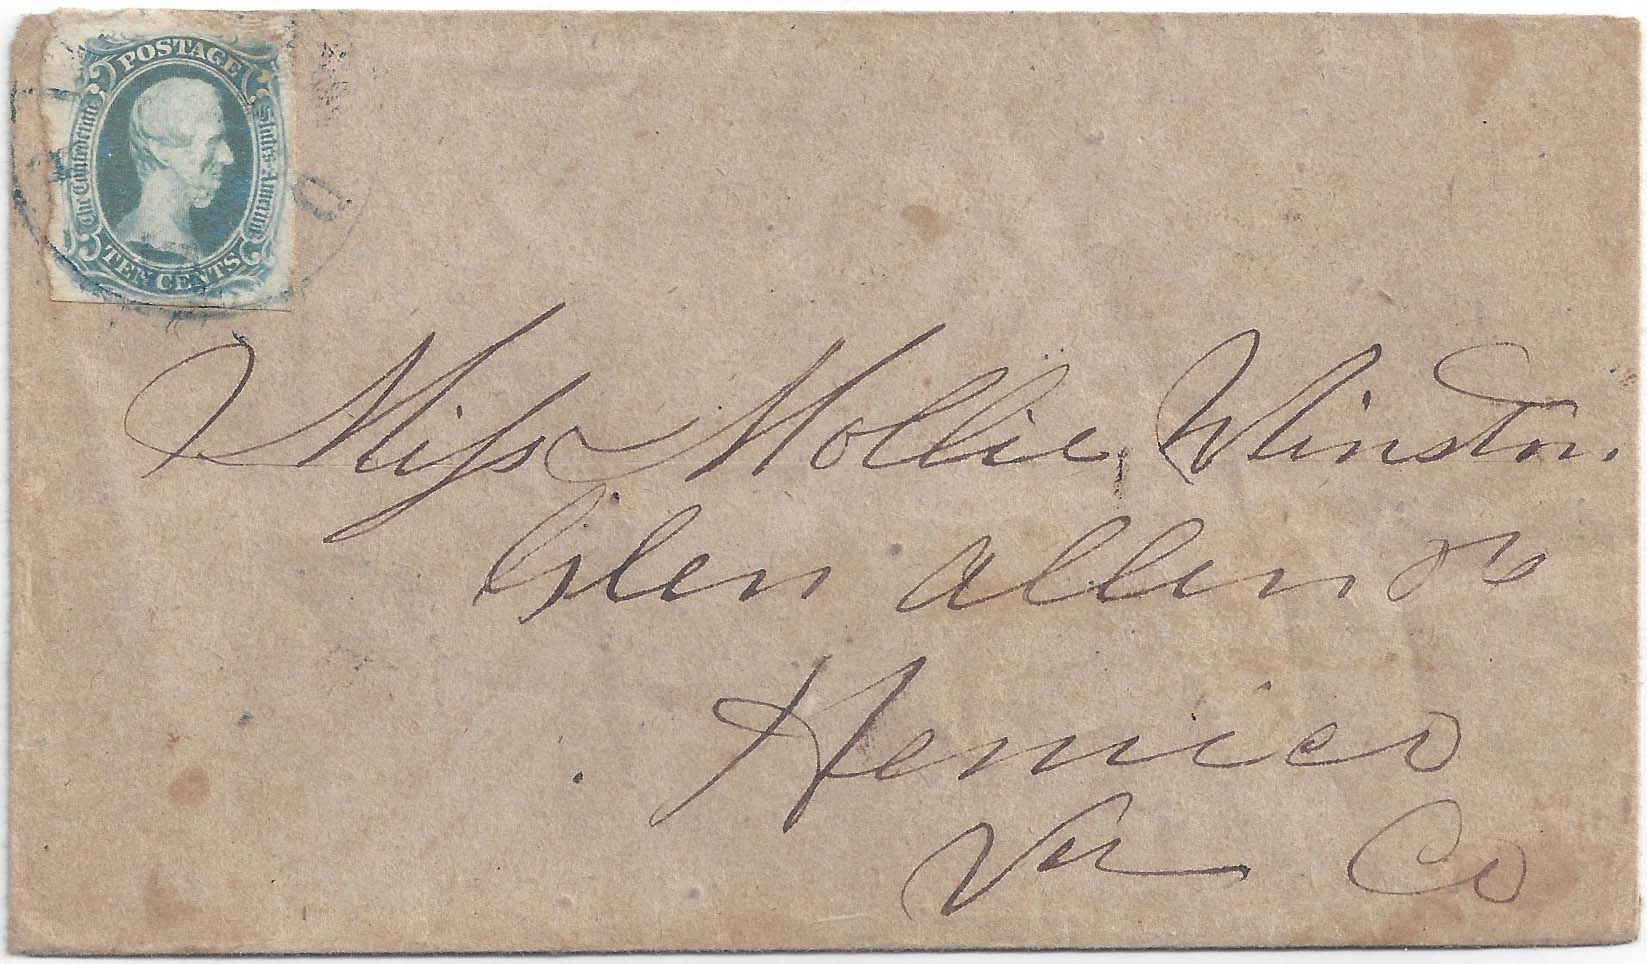 POSTAGE
The Confederate States America
TEN CENTS
Miss Mollie Winston
Glen Allen
Henrico
Va Co